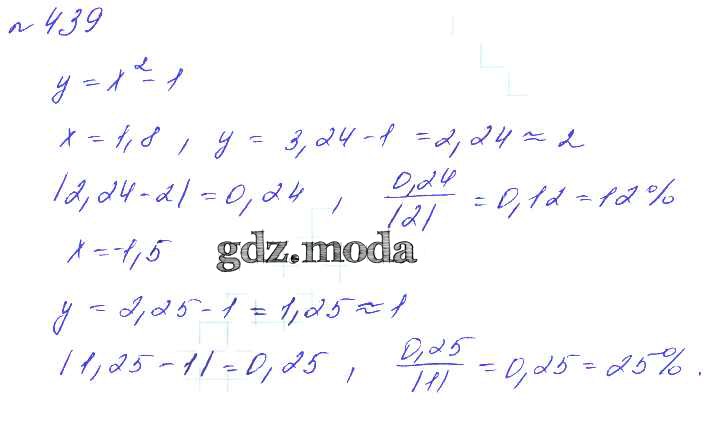 № 439
y = x² - 1
x = 1,8 , y = 3,24 - 1 = 2,24 ≈ 2
|2,24 - 2| = 0,24 , 0,24/|2| = 0,12 = 12%
x = -1,5
gdz.moda
y = 2,25 - 1 = 1,25 ≈ 1
|1,25 - 1| = 0,25 , 0,25/|1| = 0,25 = 25% .